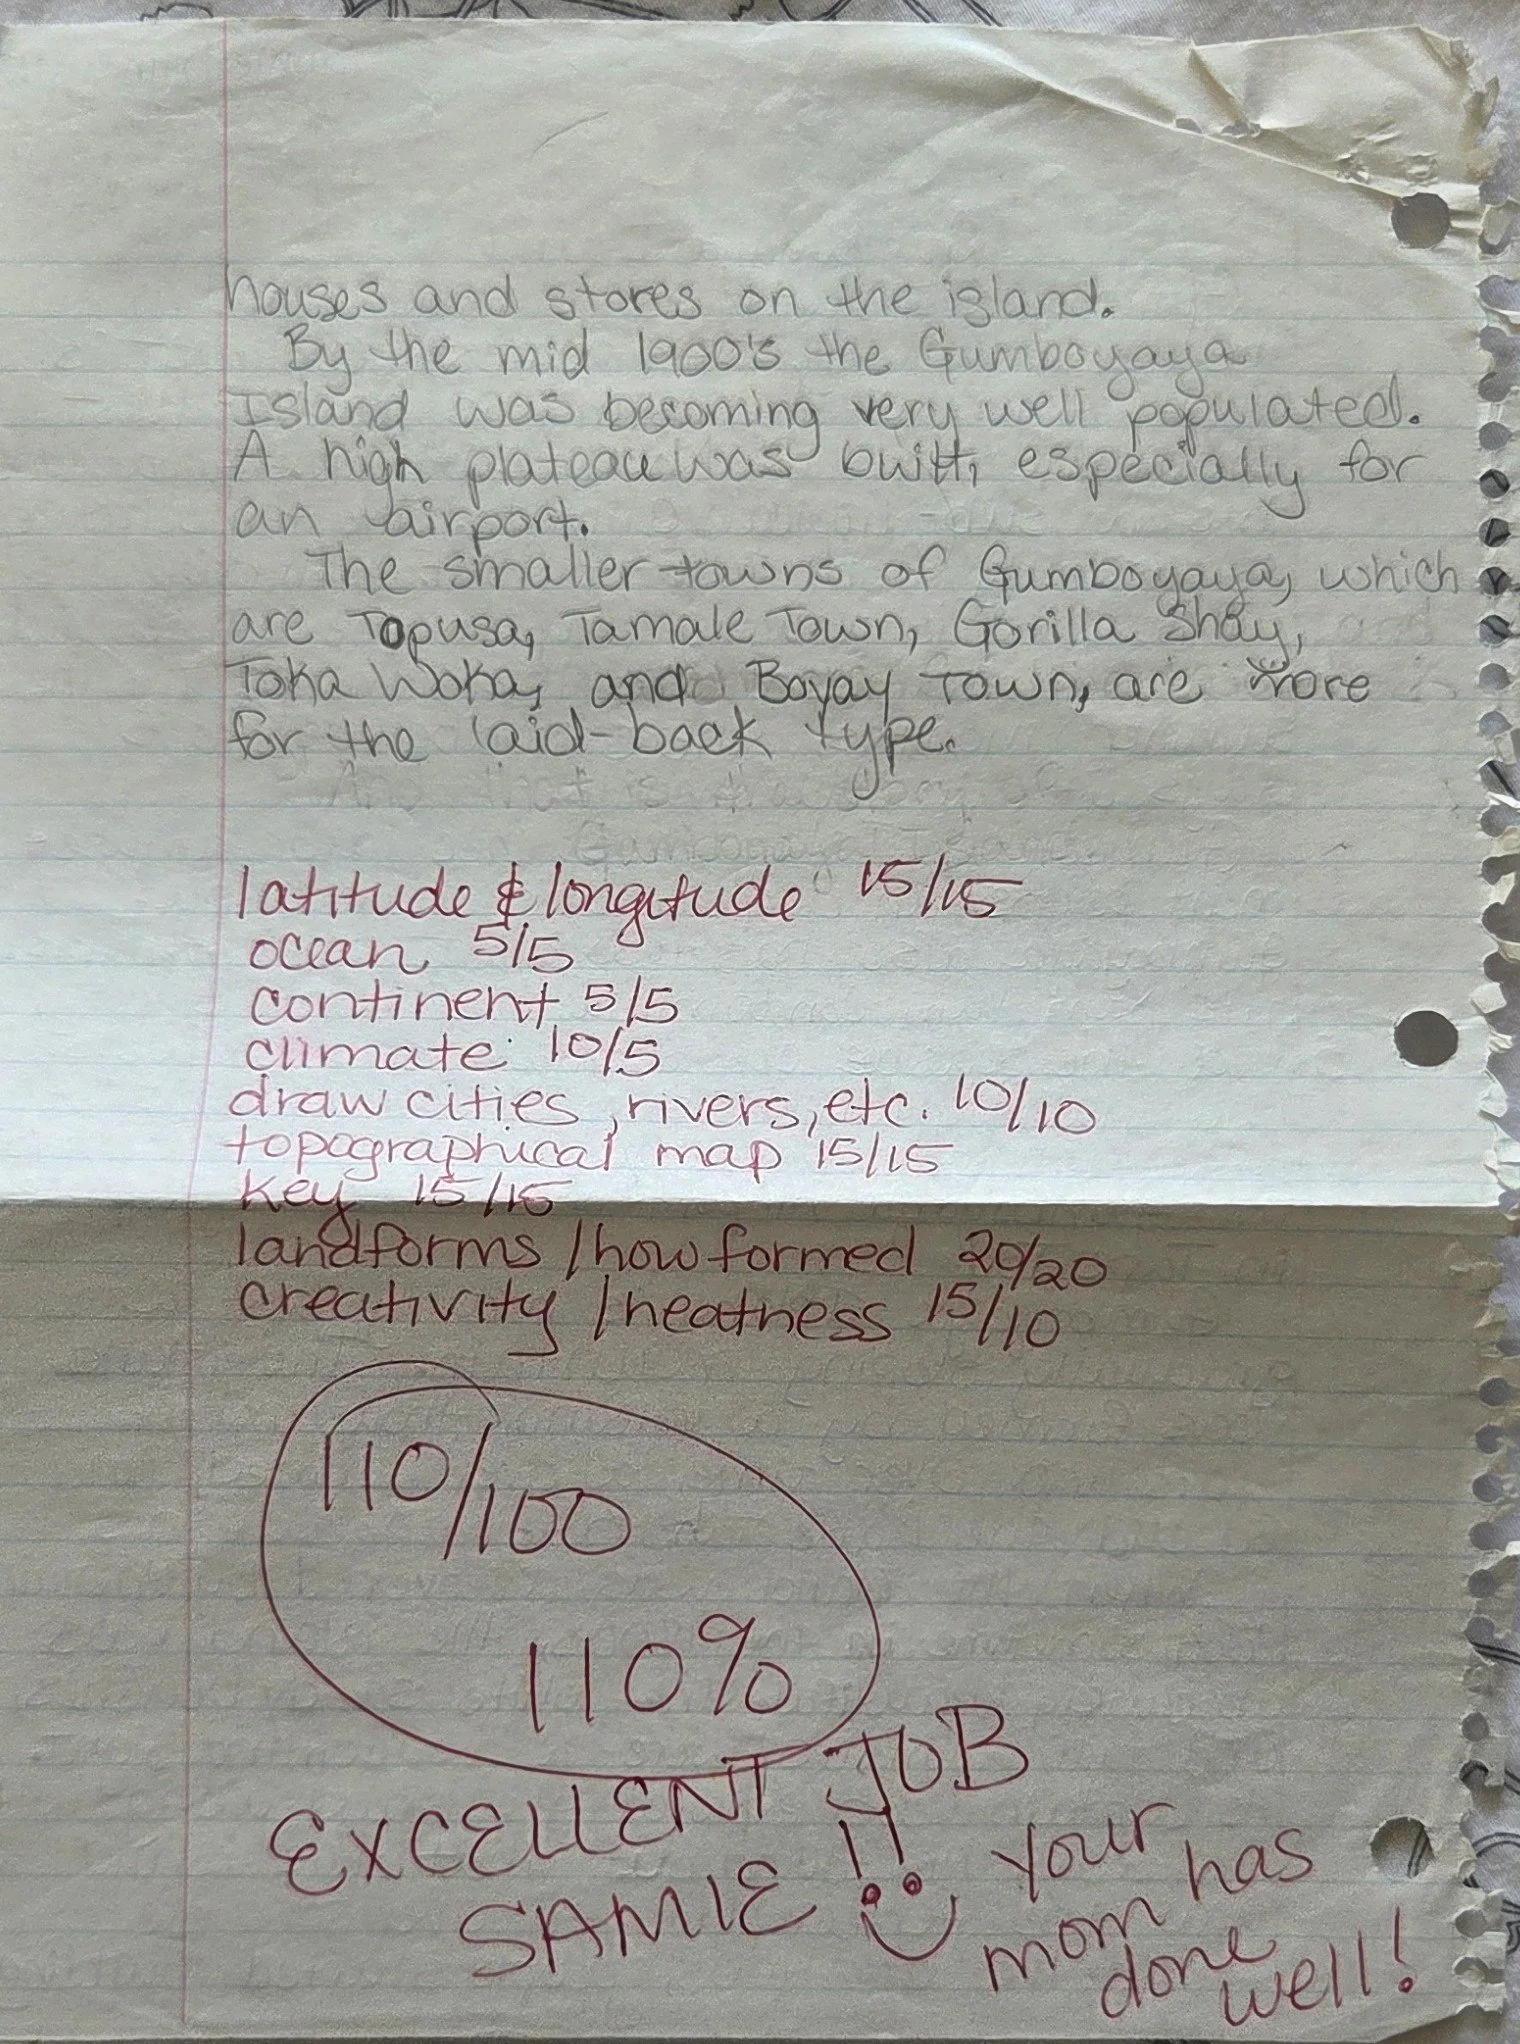 houses and stores on the island.
By the mid 1900's the Gumboyaya
Island was becoming very well populated.
A high plateau was built, especially for
an airport.
The smaller towns of Gumboyaya, which
are Topusa, Tamale Town, Gorilla Shay,
Toka Woka, and Boyay Town, are more
for the laid-back type.
And that is the story of
Gumboyaya Island.
latitude & longitude 15/15
ocean 5/5
continent 5/5
climate 10/5
draw cities, rivers, etc. 10/10
topographical map 15/15
key 15/15
landforms / how formed 20/20
creativity / neatness 15/10
110/100
110%
EXCELLENT JOB
SAMIE!!
Your
mom has
done
well!